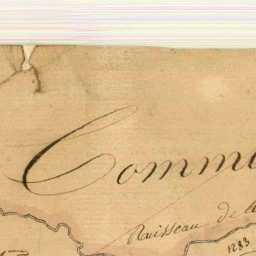 Comm
Ruisseau de
1283